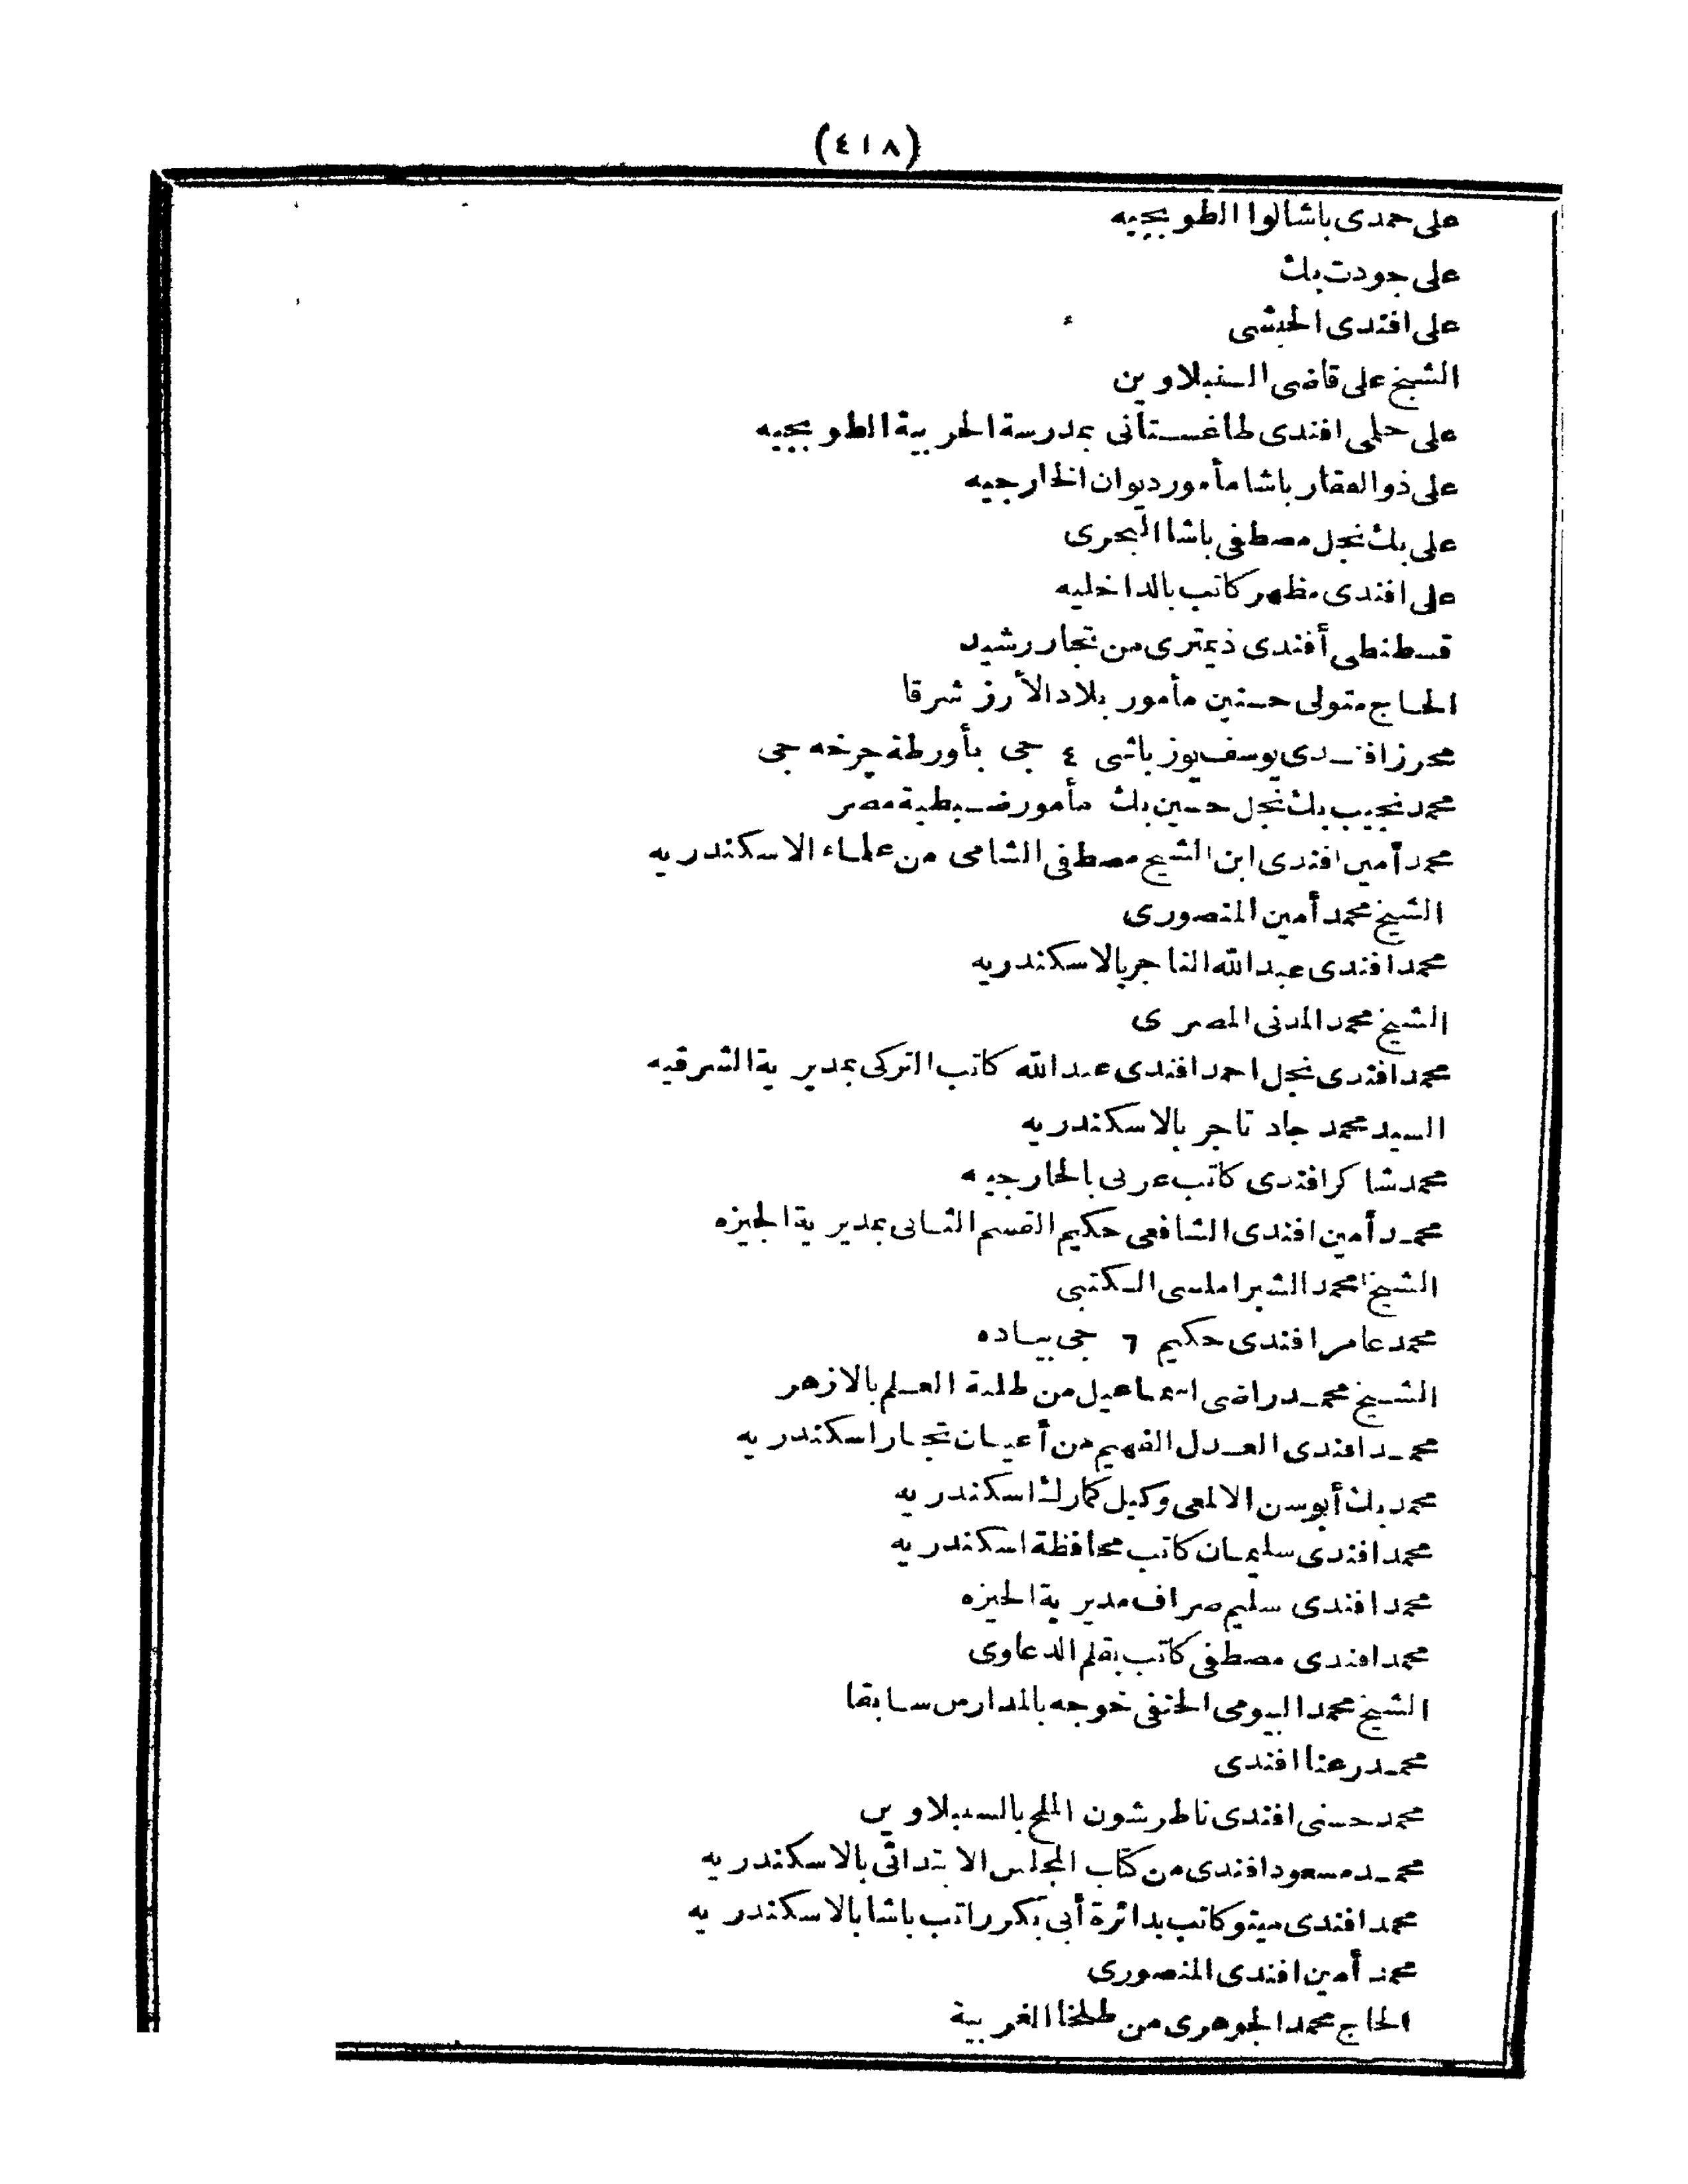 (٤١٨)
على حمدى باشا لوا الطوبجيه
على جودت بك
على افندى الحبشى
الشيخ على قاضى السنبلاوين
على حلمى افندى طاغستانى بمدرسة الحربية الطوبجيه
على ذو الفقار باشا مأمور ديوان الخارجيه
على بك نجل مصطفى باشا البحرى
على افندى مظهر كاتب بالداخليه
قسطنطى أفندى ذيمترى من تجار رشيد
الحاج متولى حسنين مأمور بلاد الأرز شرقا
محرز افندى يوسف يوزباشى ٤ جى بأورطة چرخه جى
محمد نجيب بك نجل حسين بك مأمور ضبطية مصر
محمد أمين افندى ابن الشيخ مصطفى الشامى من علماء الاسكندريه
الشيخ محمد أمين المنصورى
محمد افندى عبد الله التاجر بالاسكندريه
الشيخ محمد المدنى المصرى
محمد افندى نجل احمد افندى عبد الله كاتب التركى بمديرية الشرقيه
السيد محمد جاد تاجر بالاسكندريه
محمد شاكر افندى كاتب عربى بالخارجيه
محمد أمين افندى الشافعى حكيم القسم الثانى بمديرية الجيزه
الشيخ محمد الشبراملسى الكتبى
محمد عامر افندى حكيم ٦ جى بياده
الشيخ محمد راضى اسماعيل من طلبة العلم بالازهر
محمد افندى العدل الفهيم من أعيان تجار اسكندريه
محمد بك أبو سن الالمعى وكيل كمارك اسكندريه
محمد افندى سليمان كاتب محافظة اسكندريه
محمد افندى سليم صراف مديرية الجيزه
محمد افندى مصطفى كاتب بقلم الدعاوى
الشيخ محمد البيومى الحنفى خوجه بالمدارس سابقا
محمد رعنا افندى
محمد حسنى افندى ناظر شون الملح بالسنبلاوين
محمد مسعود افندى من كتاب المجلس الابتدائى بالاسكندريه
محمد افندى ميتو كاتب بدائرة أبى بكر راتب باشا بالاسكندريه
محمد أمين افندى المنصورى
الحاج محمد الجوهرى من طلخا الغربية